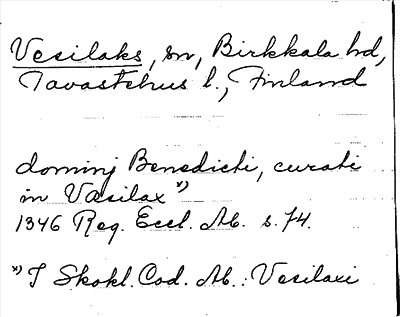 Vesilaks, sn, Birkkala hd,
Tavastehus l., Finland
dominj Benedicti, curati
in Vasilax x)
1346 Reg. Eccl. Ab. s. 74.
x) I Skokl. Cod. Ab.: Vesilaxi